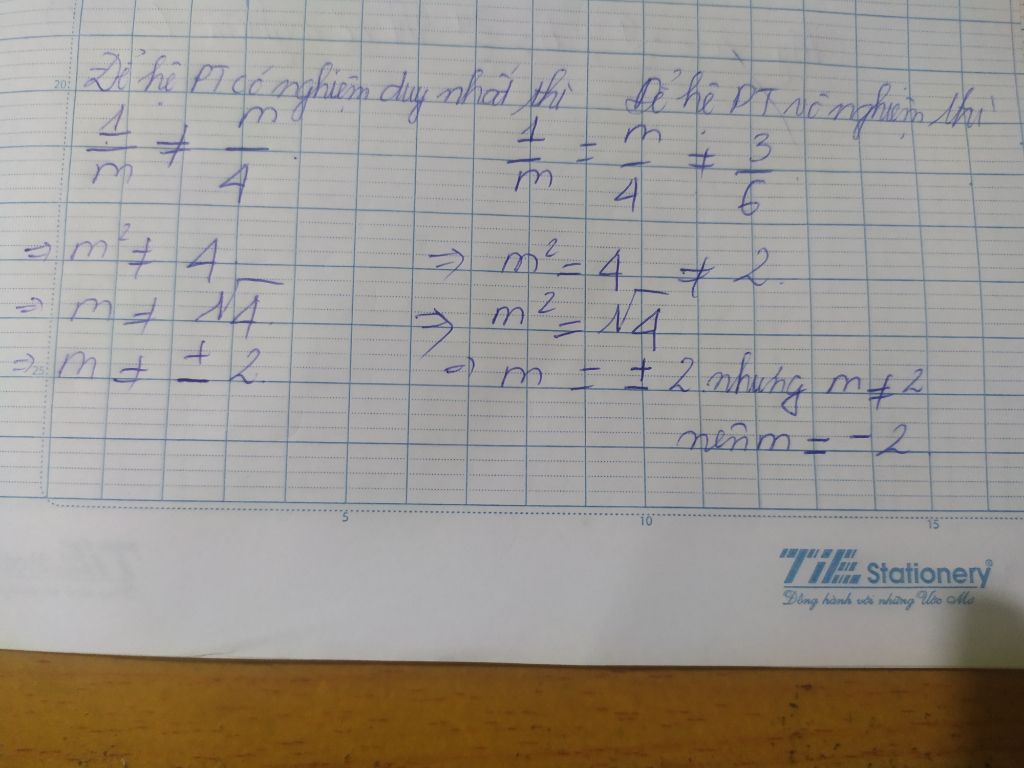 Để hệ PT có nghiệm duy nhất thì
1/m ≠ m/4
⇒ m² ≠ 4
⇒ m ≠ √4
⇒ m ≠ ± 2
Để hệ PT vô nghiệm thì
1/m = m/4 ≠ 3/6
⇒ m² = 4 ≠ 2
⇒ m² = √4
⇒ m = ± 2 nhưng m ≠ 2
nên m = - 2
20
25
5 10 15
TiE Stationery
Đồng hành với những Ước Mơ